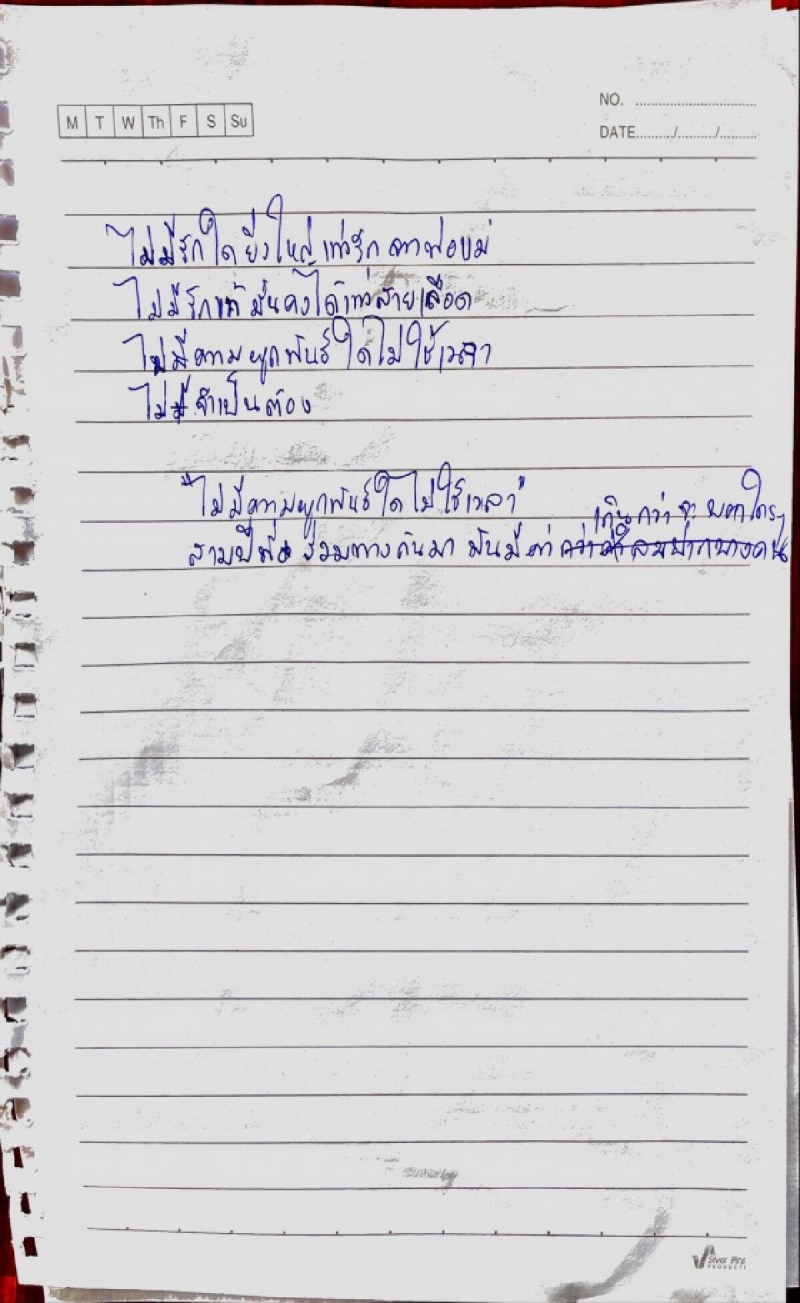 NO. ................
DATE......../......../........
M T W Th F S Su
ไม่มีรักใดยิ่งใหญ่เท่ารัก
ไม่มีรักแท้มั่นคงได้เท่าสายเลือด
ไม่มีความผูกพันธ์ใดไม่ใช้เวลา
ไม่มีจำเป็นต้อง
"ไม่มีความผูกพันธ์ใดไม่ใช้เวลา"
เกินกว่าจะบอกใครๆ
สามปีที่ร่วมทางกันมา มันมีค่า
Silver Pine
PRODUCTS